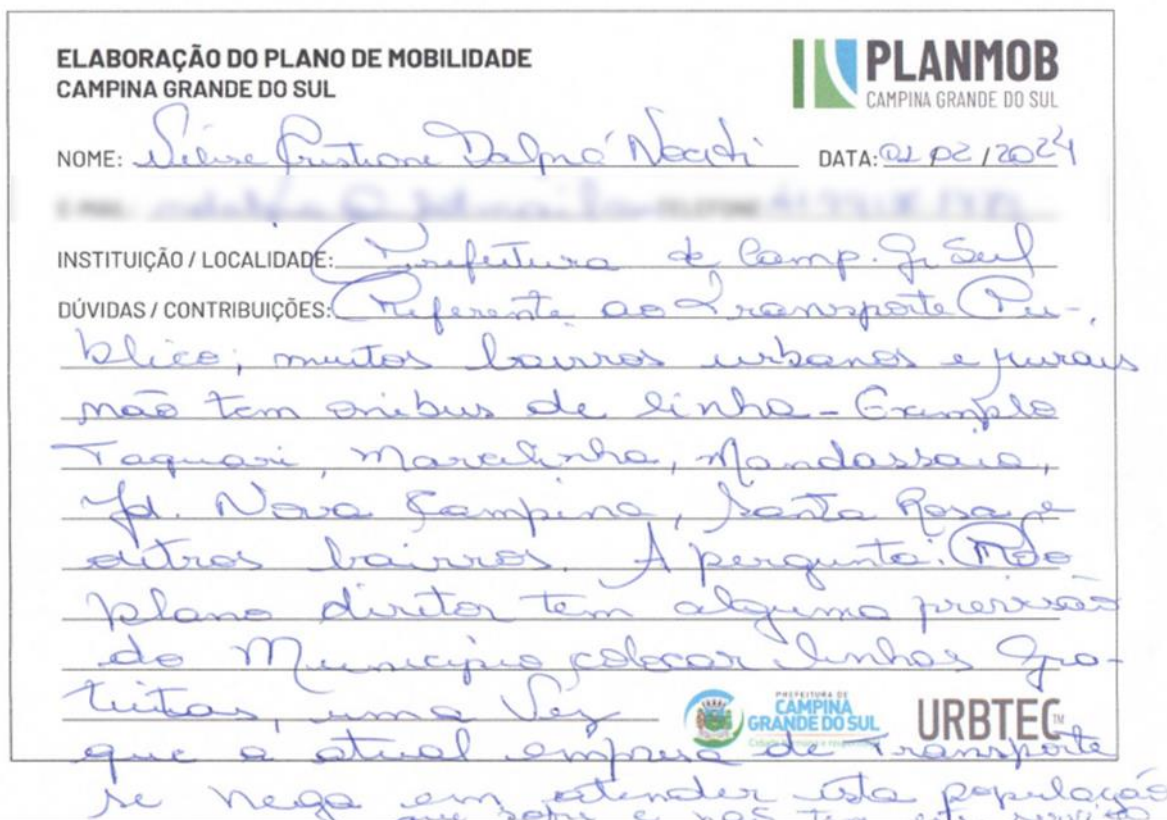 ELABORAÇÃO DO PLANO DE MOBILIDADE
CAMPINA GRANDE DO SUL
PLANMOB
CAMPINA GRANDE DO SUL
NOME: Cristiane Dalprá DATA: 02/02/2024
INSTITUIÇÃO / LOCALIDADE: Prefeitura de Camp. Gr Sul
DÚVIDAS / CONTRIBUIÇÕES: Referente ao Transporte Pu-
blico, muitos bairros urbanos e rurais
não tem onibus de linha - Exemplo
Taquari, Marcelinha, Mandassaia,
Jd. Nova Campina, Santa Rosa e
outros bairros. A pergunta: No
plano diretor tem alguma previsão
do Municipio colocar linhas Gra-
tuitas, uma Vez
que a atual empresa de Transporte
se nega em atender esta população
que sofre e não tem este serviço
PREFEITURA DE
CAMPINA
GRANDE DO SUL
URBTEC™